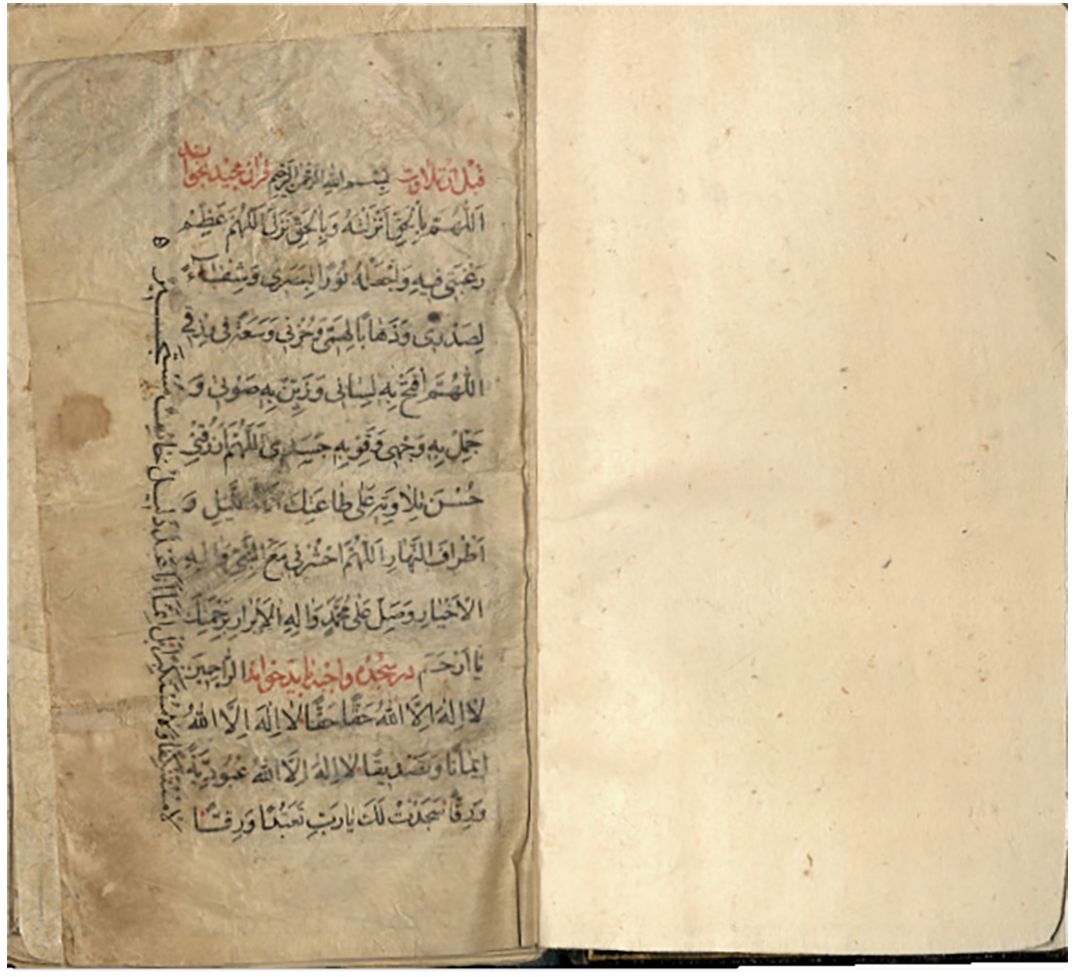 قبل از تلاوت بسم الله الرحمن الرحيم قران مجيد بخواند
اَللّٰهُمَّ بِالْحَقِّ اَنْزَلْتَهُ وَبِالْحَقِّ نَزَلَ اَللّٰهُمَّ عَظِّمْ
رَغْبَتى فيهِ وَاجْعَلْهُ نُورًا لِبَصَرى وَشِفَاءً
لِصَدْرى وَذَهابًا لِهَمّى وَحُزْنى وَسَعَةً فى رِزْقى
اَللّٰهُمَّ افْتَحْ بِهِ لِسانى وَزَيِّنْ بِهِ صَوْتى وَ
جَمِّلْ بِهِ وَجْهى وَقَوِّ بِهِ جَسَدى اَللّٰهُمَّ ارْزُقْنى
حُسْنَ تِلاوَتِهِ عَلى طاعَتِكَ اٰناءَ اللَّيْلِ وَ
اَطْرافَ النَّهارِ اَللّٰهُمَّ احْشُرْنى مَعَ النَّبِىِّ وَاٰلِهِ
الْاَخْيارِ وَصَلِّ عَلى مُحَمَّدٍ وَاٰلِهِ الْاَبْرارِ بِرَحْمَتِكَ
يا اَرْحَمَ در سجده واجب بايد خواند الرّاحِمينَ
لا اِلٰهَ اِلَّا اللهُ حَقًّا حَقًّا لا اِلٰهَ اِلَّا اللهُ
ايمانًا وَتَصْديقًا لا اِلٰهَ اِلَّا اللهُ عُبُودِيَّةً
وَرِقًّا سَجَدْتُ لَكَ يا رَبِّ تَعَبُّدًا وَرِقًّا
لا مُسْتَنْكِفًا وَلا مُسْتَكْبِرًا بَلْ اَنَا عَبْدٌ ذَليلٌ خائِفٌ مُسْتَجيرٌ